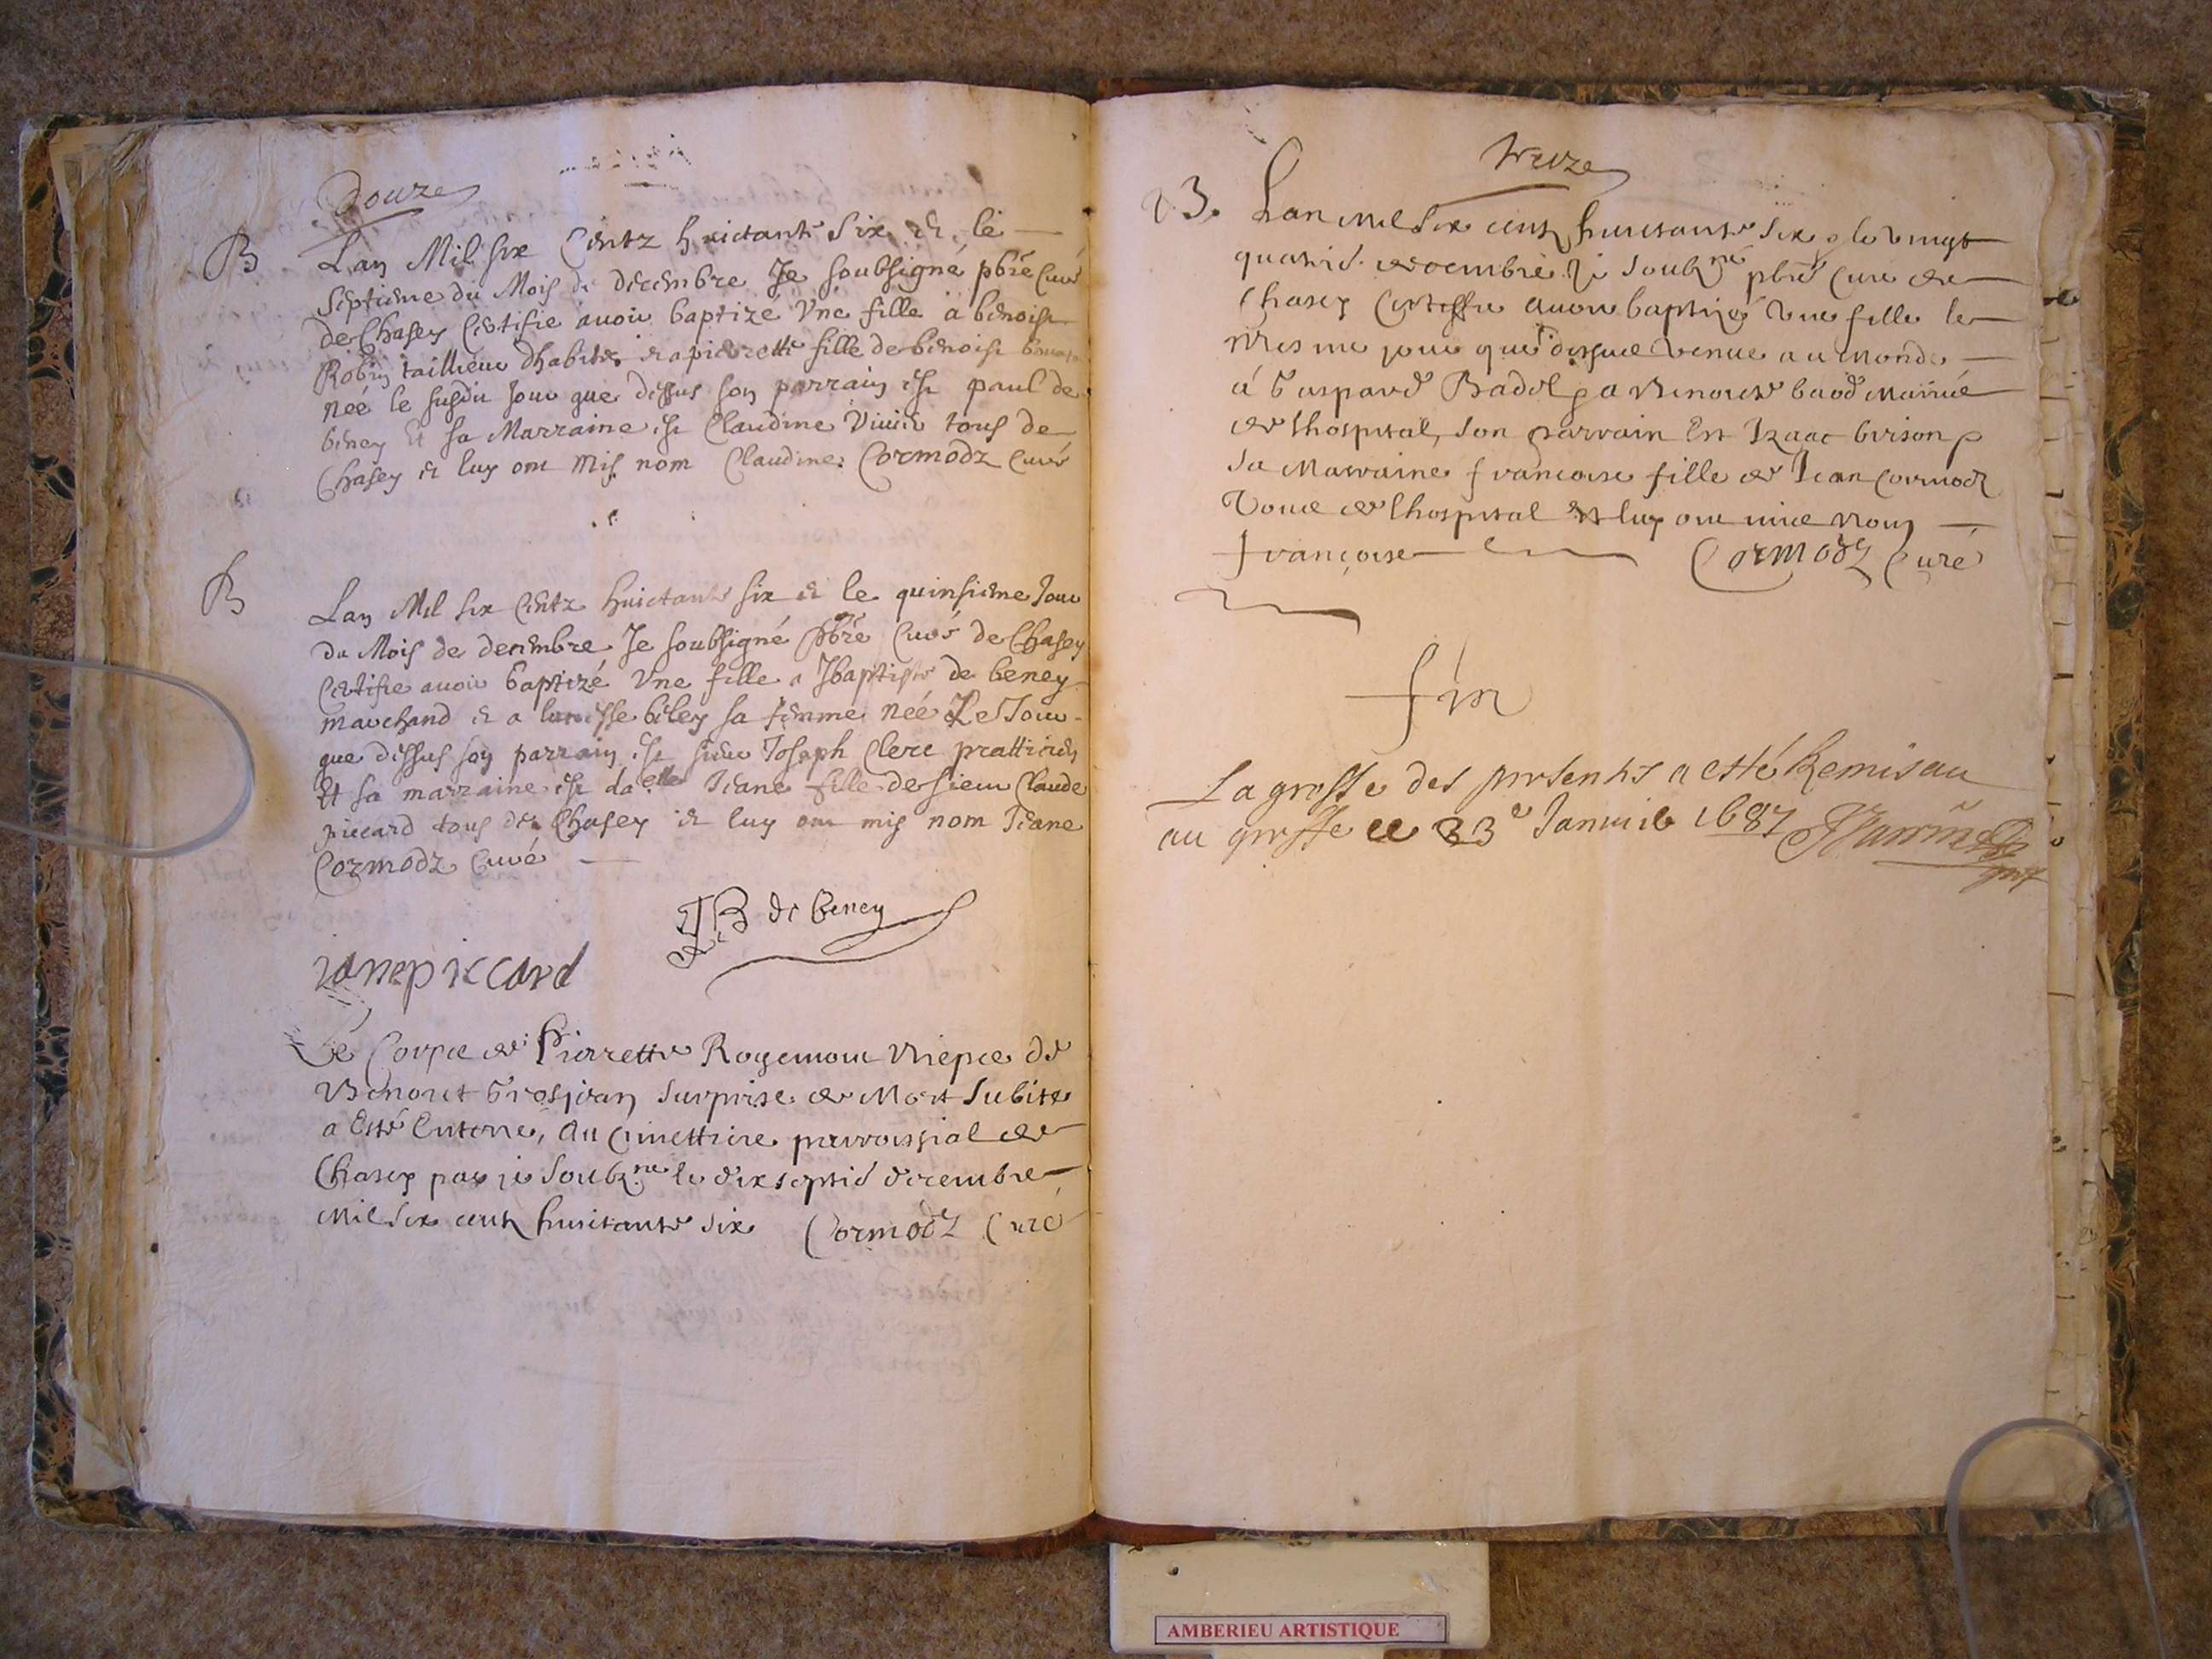 Douze
B
Lan Mil six Centz huictante Six et le
septieme du Mois de decembre Je soubsigné pbre Curé
de Chasey Certifie avoir baptizé Une fille a benoist
Robin taillieur dhabitz et a pierrette fille de benoist
née le susdit jour que dessus son parrain est paul de
beney Et sa Marraine est Claudine tous de
Chasey et luy ont mis nom Claudine. Cormodz Curé
B
Lan Mil six Centz huictante six et le quinsieme Jour
du Mois de decembre Je soubsigné pbre Curé de Chasey
Certifie avoir baptizé Une fille a Jbaptiste de beney
marchand et a sa femme née Le Jour
que dessus son parrain est sieur Joseph Clerc pratticien
Et sa marraine est da.elle Jeane fille de sieur Claude
piccard tous de Chasey et luy ont mis nom Jeane
Cormodz Curé
JB de beney
iane piccard
Le Corps de Pierrette Rogemont Niepce de
Benoict Grosjean surprise de Mort subite
a Esté Enterré, Au Cimettiere parroissial de
Chasey par je soubz.né le dixseptié decembre
mil six centz huictante six Cormodz Curé
Treize
B. Lan mil six centz huictante six & le vingt
quatrié decembre Je soubz.né pbre Curé de
Chasey Certiffie avoir baptizé Une fille le
mesme jour que dessus venue au monde
á Gaspard Badol & a Benoiste marié
de lhospital, son parrain Est Izaac &
sa Marraine francoise fille de Jean Cormodz
tous de lhospital Et luy ont mis nom
françoise Cormodz Curé
fin
La grosse des presentes a esté Remis au
au greffe ce 23e Janvier 1687
AMBERIEU ARTISTIQUE